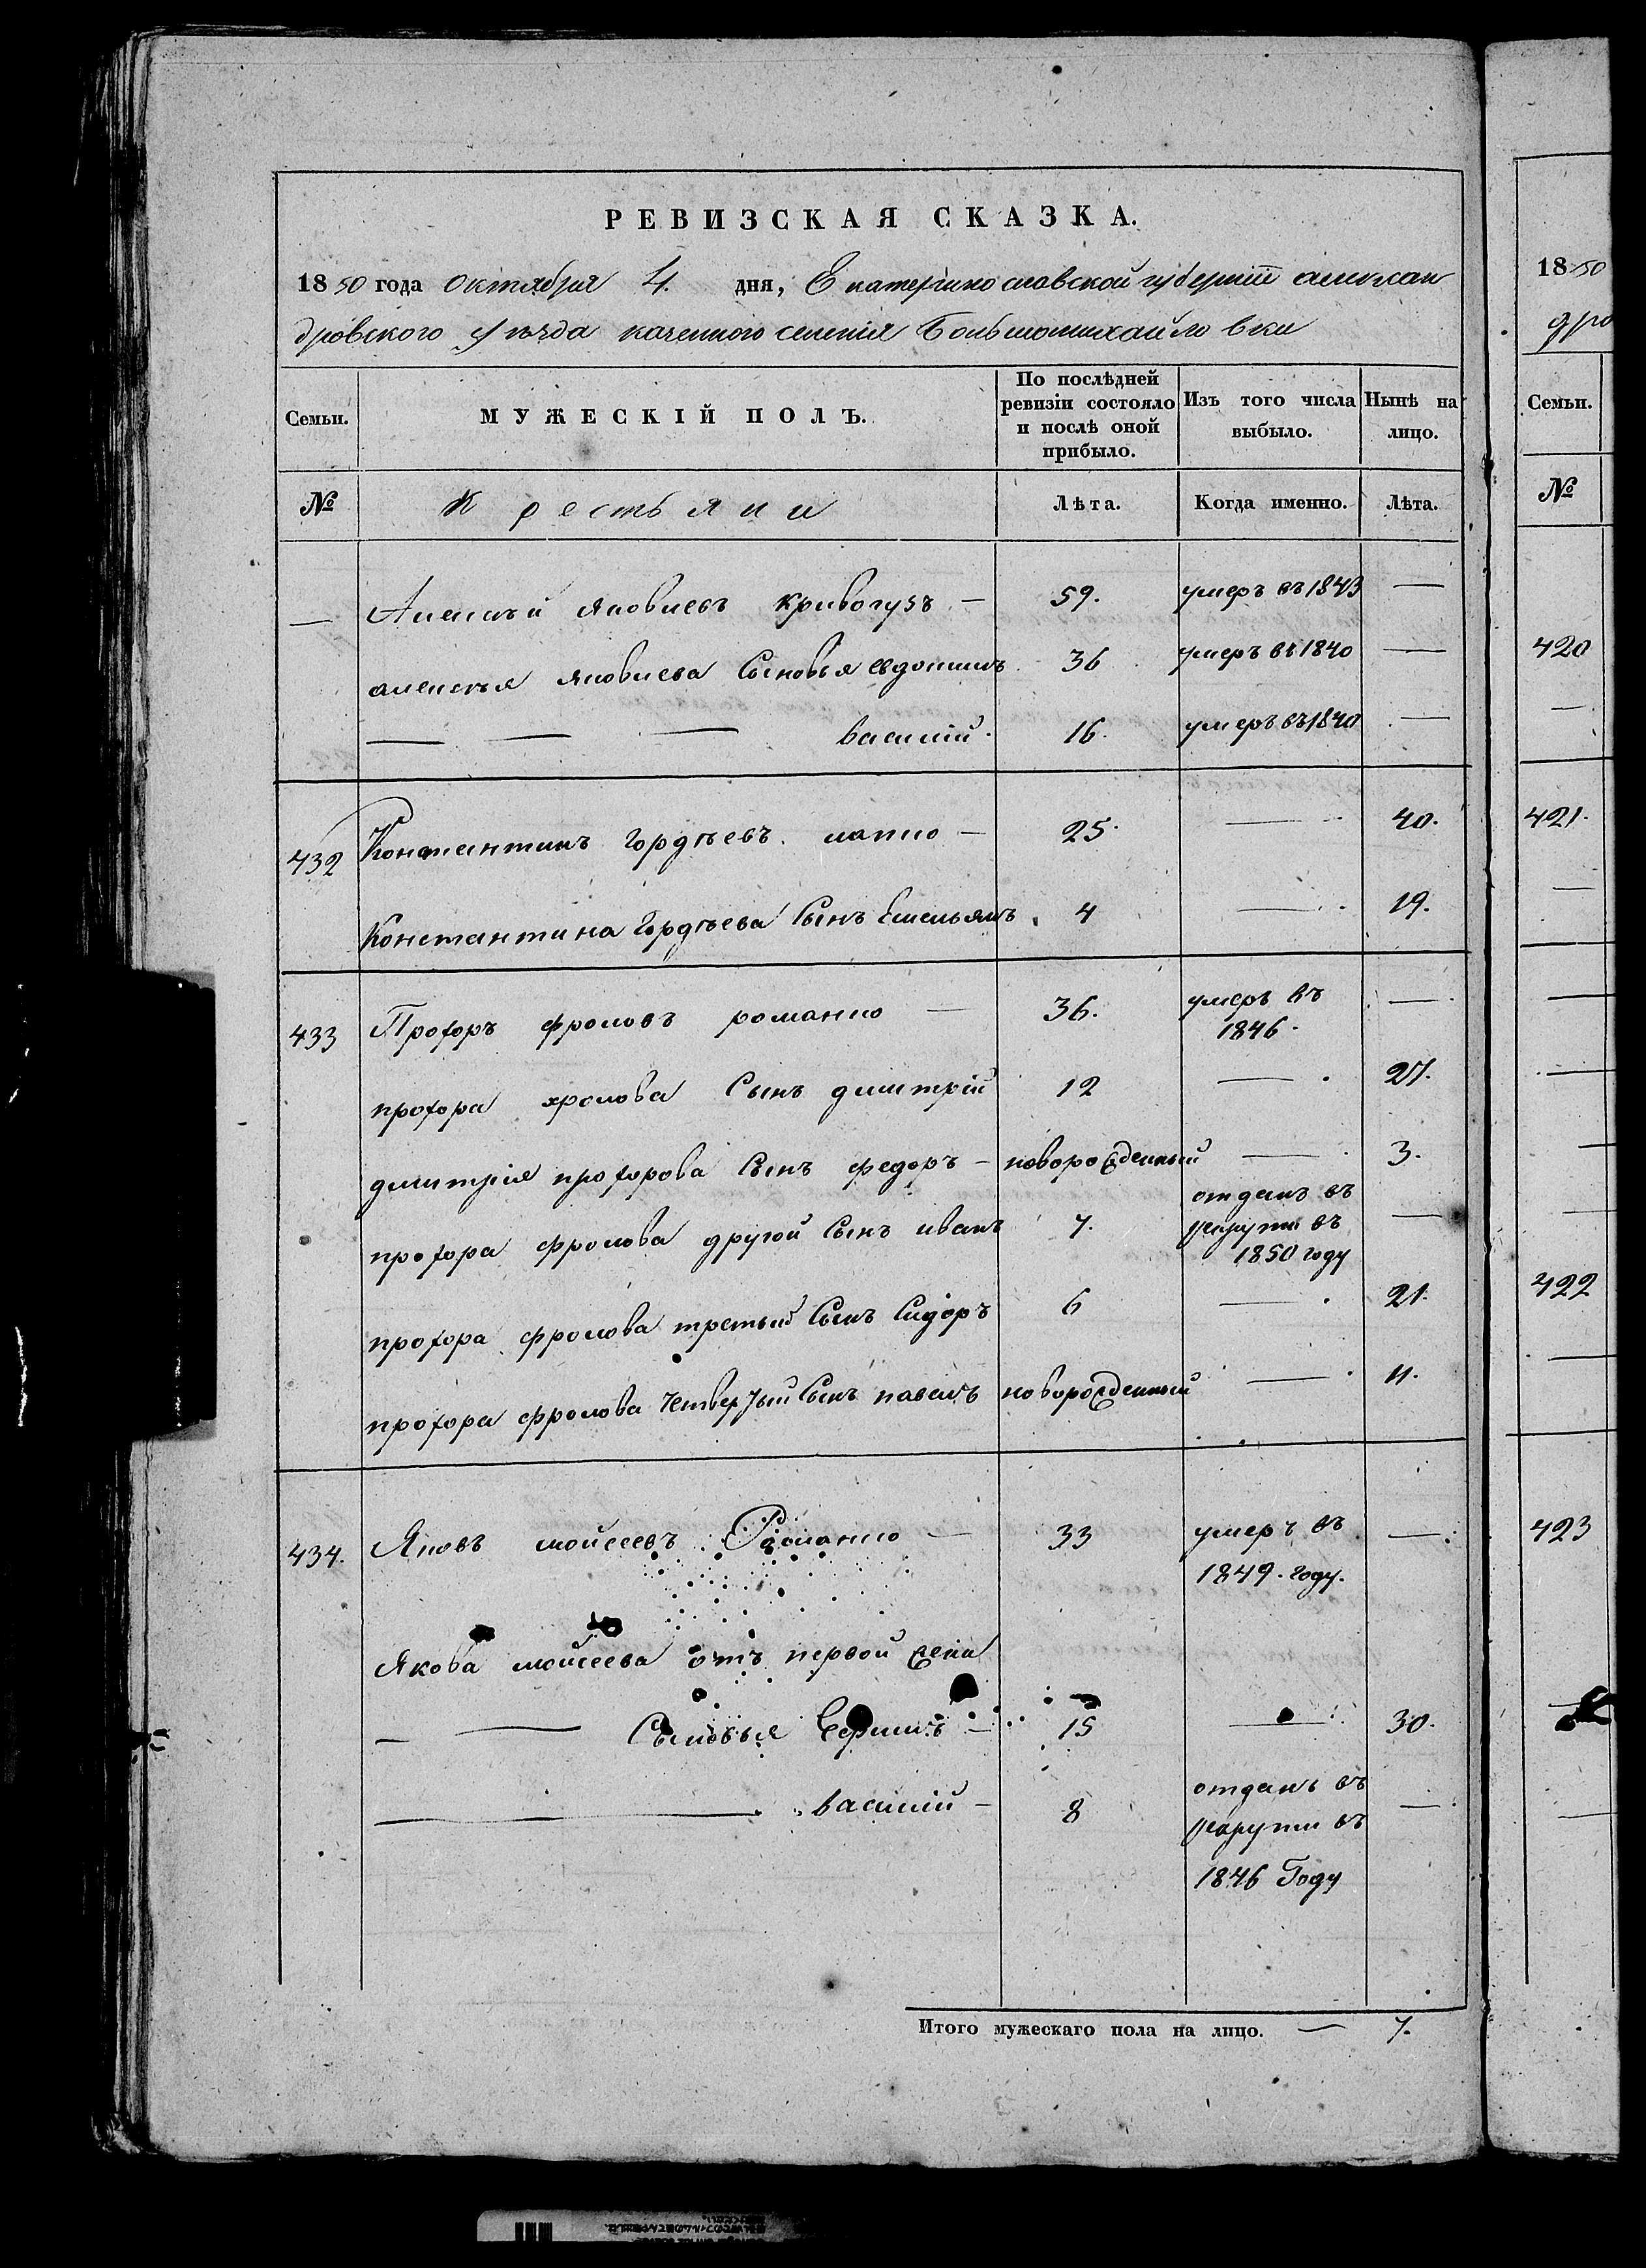 РЕВИЗСКАЯ СКАЗКА.
1850 года октября 4. дня, Екатеринославской губернии александ
дровского уѣзда казенного селенія Большомихайловки
Семьи.
МУЖЕСКІЙ ПОЛЪ.
По послѣдней ревизіи состояло и послѣ оной прибыло.
Изъ того числа выбыло.
Нынѣ на лицо.
№
Крестьяни
Лѣта.
Когда именно.
Лѣта.
— Алексѣй яковлевъ кривогузъ — 59. умеръ въ 1843 —
алексѣя яковлева Сыновья евдокимъ 36 умеръ въ 1840 —
— — — василій 16. умеръ въ 1840 —
432 Константинъ Гордѣевъ лапко — 25. — 40.
Константина Гордѣева Сынъ Емельянъ 4 — 19.
433 Прохоръ фроловъ романко — 36. умеръ въ —
1846.
прохора хролова Сынъ дмитрій 12 — 27.
дмитрія прохорова Сынъ федоръ — новорожденный — 3.
прохора фролова другой Сынъ иванъ 7. отданъ въ —
рекруты въ
1850 году
прохора фролова третьий Сынъ Сидоръ 6 — 21.
прохора фролова четвертый Сынъ павелъ новорожденный — 11.
434. Яковъ мойсеевъ Романко — 33 умеръ въ —
1849. году.
Якова мойсеева отъ первой жени
— — Сыновья Ефимъ — 15 — 30.
— василій — 8 отданъ въ —
рекруты въ
1846 Году
Итого мужескаго пола на лицо. — 7.
1850
дро
Семьи.
№
420
—
421.
—
—
—
—
—
422
—
423
—
—